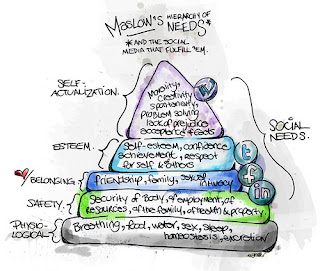 MASLOW'S HIERARCHY OF
NEEDS*
*AND THE SOCIAL
MEDIA THAT FULFILL 'EM.
SELF-
ACTUALIZATION.
Morality,
creativity
spontaneity,
problem solving
lack of prejudice
acceptance of facts
W
ESTEEM.
Self-esteem, confidence
achievement, respect
for self & others
t
SOCIAL
NEEDS.
BELONGING.
Friendship, family, sexual
intimacy
f
in
SAFETY.
Security of Body, of employment, of
resources, of the family, of health & property
PHYSIO-
LOGICAL.
Breathing, food, water, sex, sleep,
homeostasis, excretion